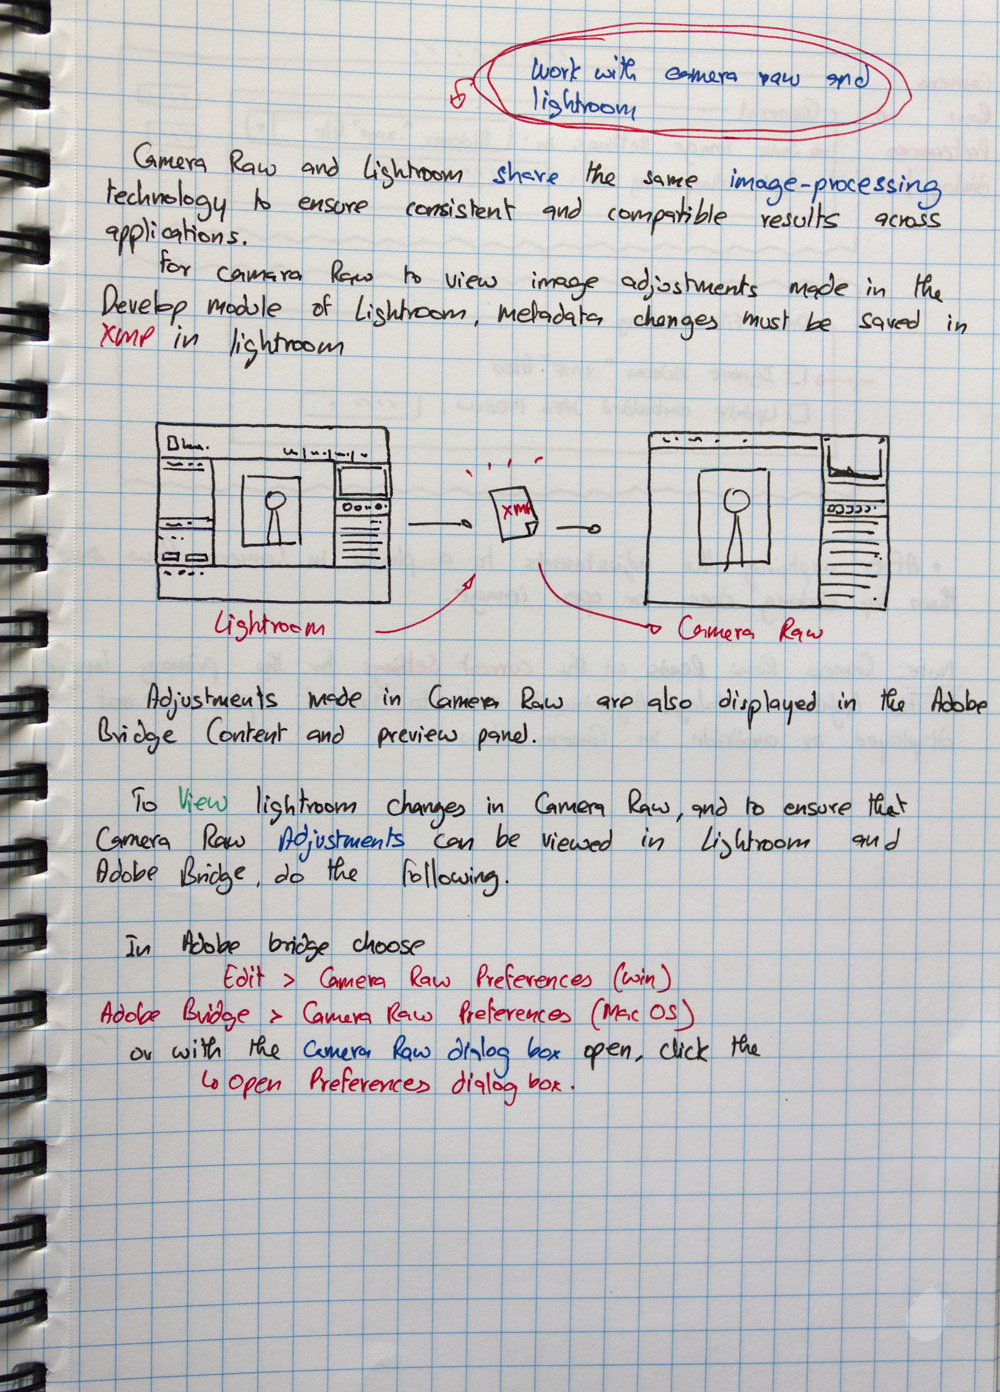 Work with camera raw and
lightroom
Camera Raw and Lightroom share the same image-processing
technology to ensure consistent and compatible results across
applications.
For camara Raw to view image adjustments made in the
Develop module of Lightroom, metadata changes must be saved in
XMP in lightroom
XMP
Lightroom
Camera Raw
Adjustments made in Camera Raw are also displayed in the Adobe
Bridge Content and preview panel.
To View lightroom changes in Camera Raw, and to ensure that
Camera Raw Adjustments can be viewed in Lightroom and
Adobe Bridge, do the following.
In Adobe bridge choose
Edit > Camera Raw Preferences (win)
Adobe Bridge > Camera Raw Preferences (Mac OS)
or with the Camera Raw dialog box open, click the
Open Preferences dialog box.